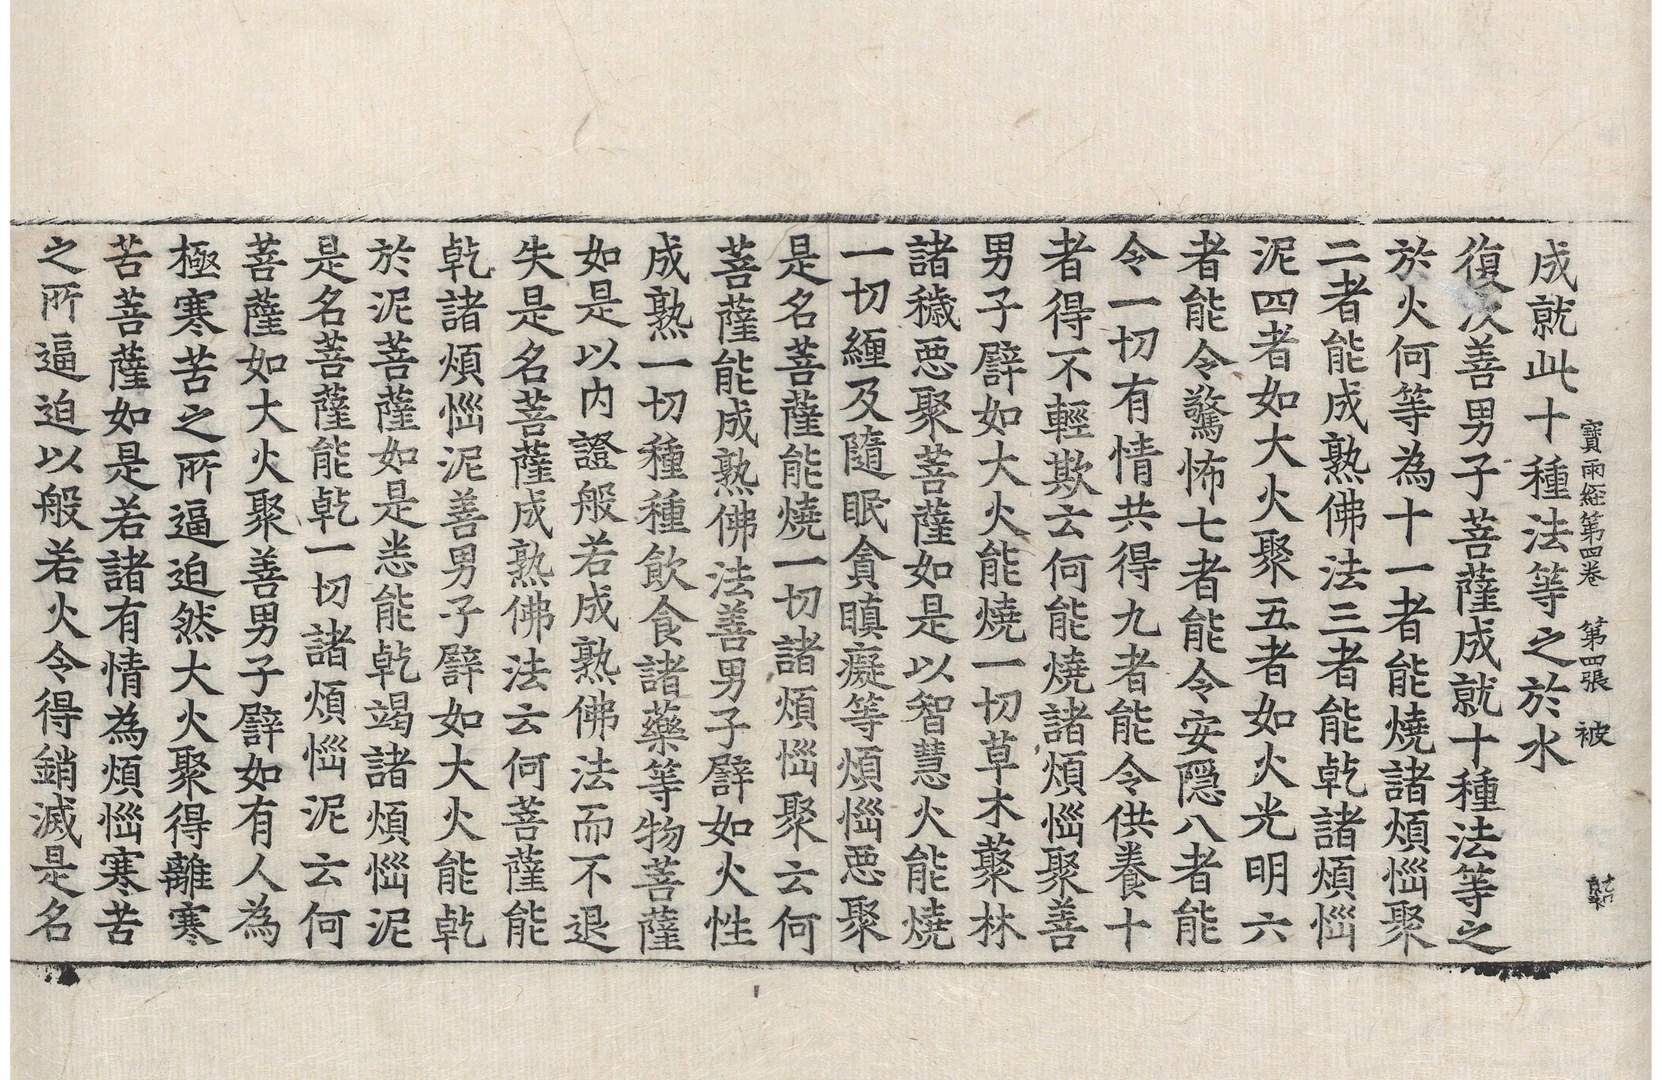 寶雨經第四卷　第四張　被
成就此十種法等之於水
復次善男子菩薩成就十種法等之
於火何等為十一者能燒諸煩惱聚
二者能成熟佛法三者能乾諸煩惱
泥四者如大火聚五者如火光明六
者能令驚怖七者能令安隱八者能
令一切有情共得九者能令供養十
者得不輕欺云何能燒諸煩惱聚善
男子譬如大火能燒一切草木藂林
諸穢惡聚菩薩如是以智慧火能燒
一切纏及隨眠貪瞋癡等煩惱惡聚
是名菩薩能燒一切諸煩惱聚云何
菩薩能成熟佛法善男子譬如火性
成熟一切種種飲食諸藥等物菩薩
如是以內證般若成熟佛法而不退
失是名菩薩成熟佛法云何菩薩能
乾諸煩惱泥善男子譬如大火能乾
於泥菩薩如是悉能乾竭諸煩惱泥
是名菩薩能乾一切諸煩惱泥云何
菩薩如大火聚善男子譬如有人為
極寒苦之所逼迫然大火聚得離寒
苦菩薩如是若諸有情為煩惱寒苦
之所逼迫以般若火令得銷滅是名